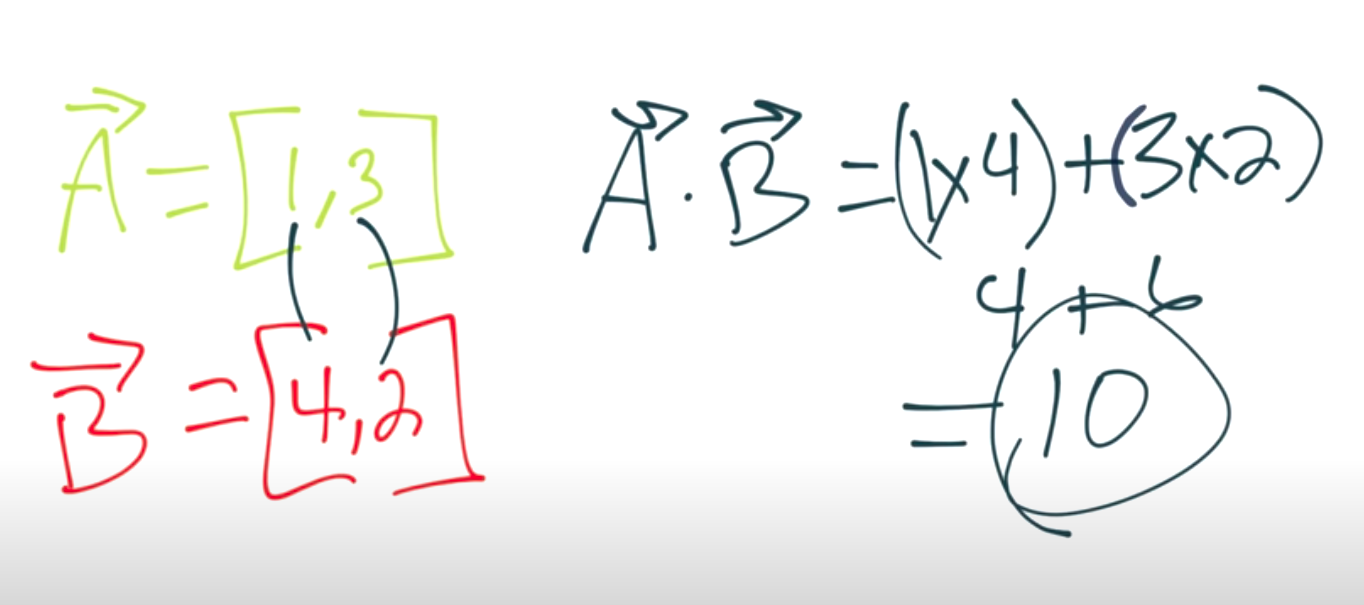 A⃗ = [1,3]
B⃗ = [4,2]
A⃗ · B⃗ = (1x4) + (3x2)
4 + 6
= 10